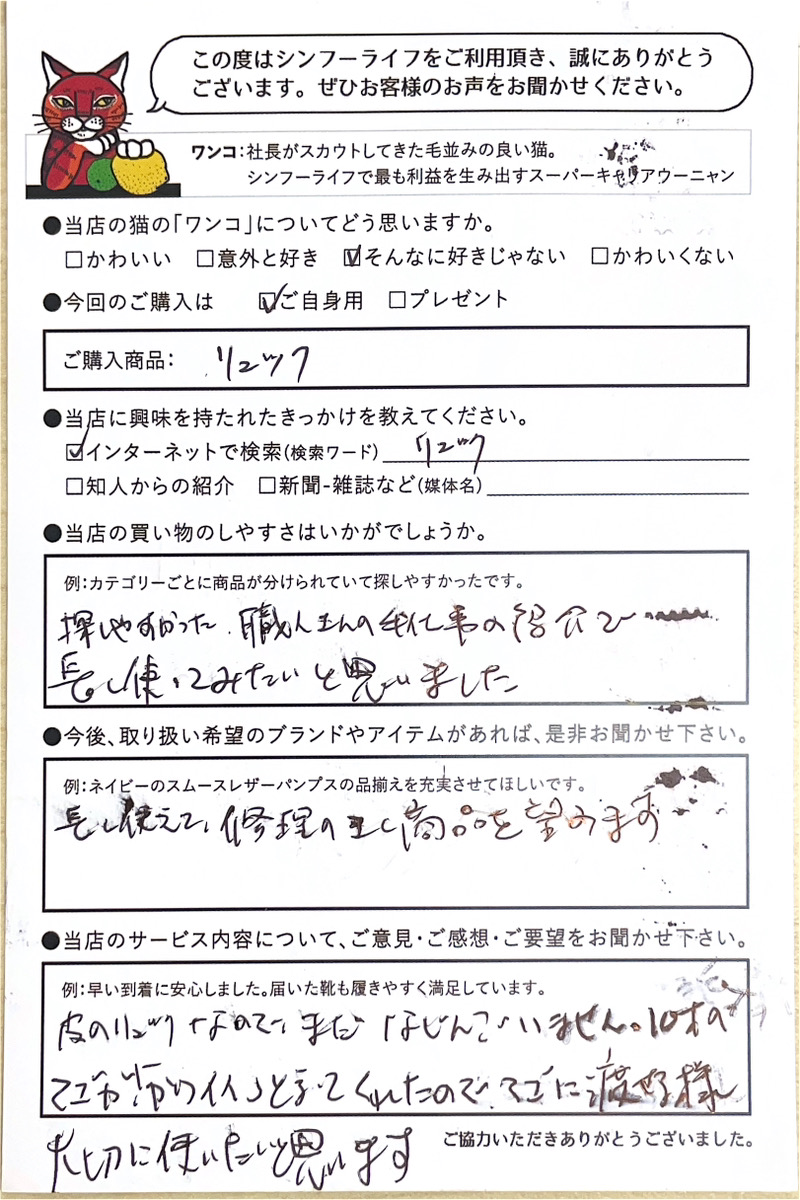 この度はシンフーライフをご利用頂き、誠にありがとう
ございます。ぜひお客様のお声をお聞かせください。
ワンコ:社長がスカウトしてきた毛並みの良い猫。
シンフーライフで最も利益を生み出すスーパーキャリアウーニャン
●当店の猫の「ワンコ」についてどう思いますか。
□かわいい □意外と好き ☑そんなに好きじゃない □かわいくない
●今回のご購入は ☑ご自身用 □プレゼント
ご購入商品: リュック
●当店に興味を持たれたきっかけを教えてください。
☑インターネットで検索(検索ワード) リュック
□知人からの紹介 □新聞-雑誌など(媒体名)
●当店の買い物のしやすさはいかがでしょうか。
例:カテゴリーごとに商品が分けられていて探しやすかったです。
探しやすかった、職人さんの手仕事の紹介で
長く使ってみたいと思いました
●今後、取り扱い希望のブランドやアイテムがあれば、是非お聞かせ下さい。
例:ネイビーのスムースレザーパンプスの品揃えを充実させてほしいです。
長く使えて、修理の 商品を望みます
●当店のサービス内容について、ご意見・ご感想・ご要望をお聞かせ下さい。
例:早い到着に安心しました。届いた靴も履きやすく満足しています。
皮のリュックなので、まだなじんでいません。10才の
マゴが「かっイイ」と言ってくれたので、マゴに渡せる様
大切に使いたいと思います
ご協力いただきありがとうございました。